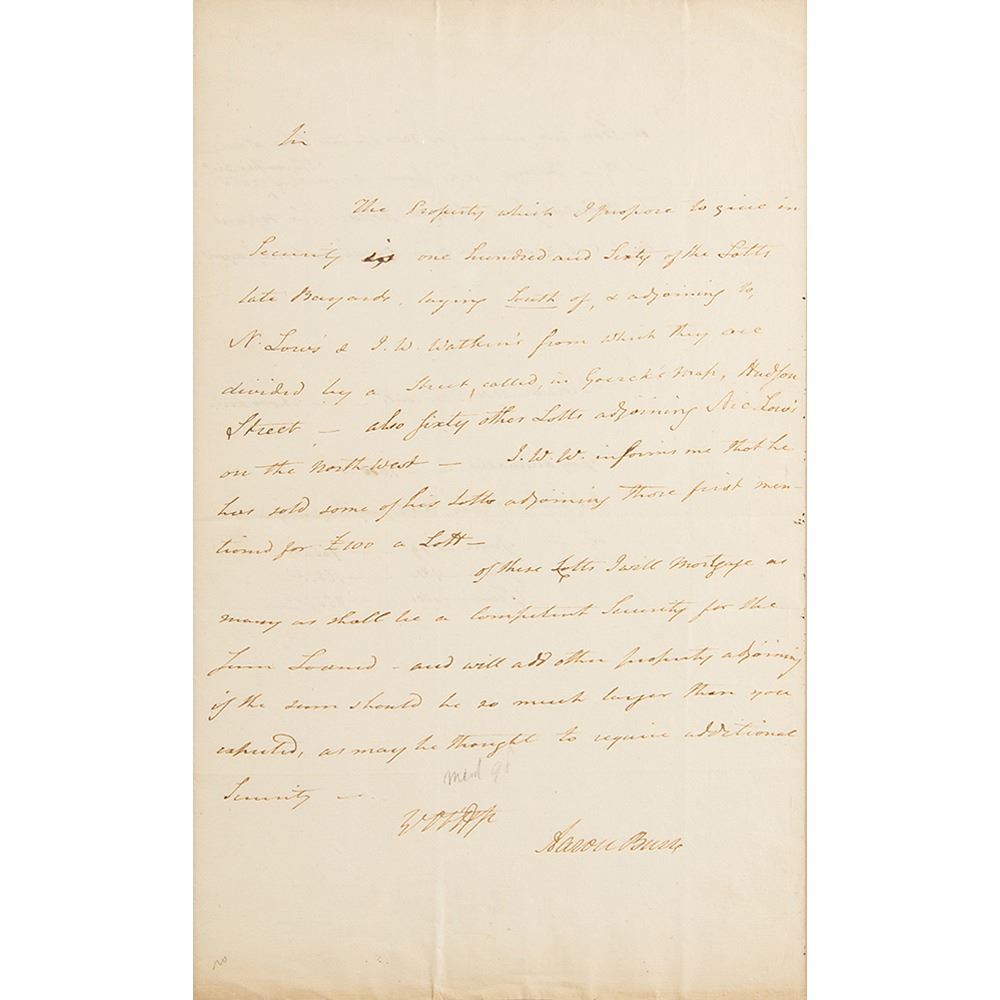 Sir
The Property which I propose to give in
Security is one hundred and Sixty of the Lotts
late Bayards, laying South of, & adjoining to,
N. Low's & J. W. Watkin's from which they are
divided by a Street, called, in Goerck's map, Hudson
Street — also sixty other Lotts adjoining Nic. Low's
on the North West — J. W. W. informs me that he
has sold some of his Lotts adjoining those first men-
tioned for £100 a Lott —
of these Lotts I will Mortgage as
many as shall be a competent Security for the
Sum Loaned - and will add other property adjoining
if the sum should be so much larger than you
expected, as may be thought to require additional
Security —
Aaron Burr